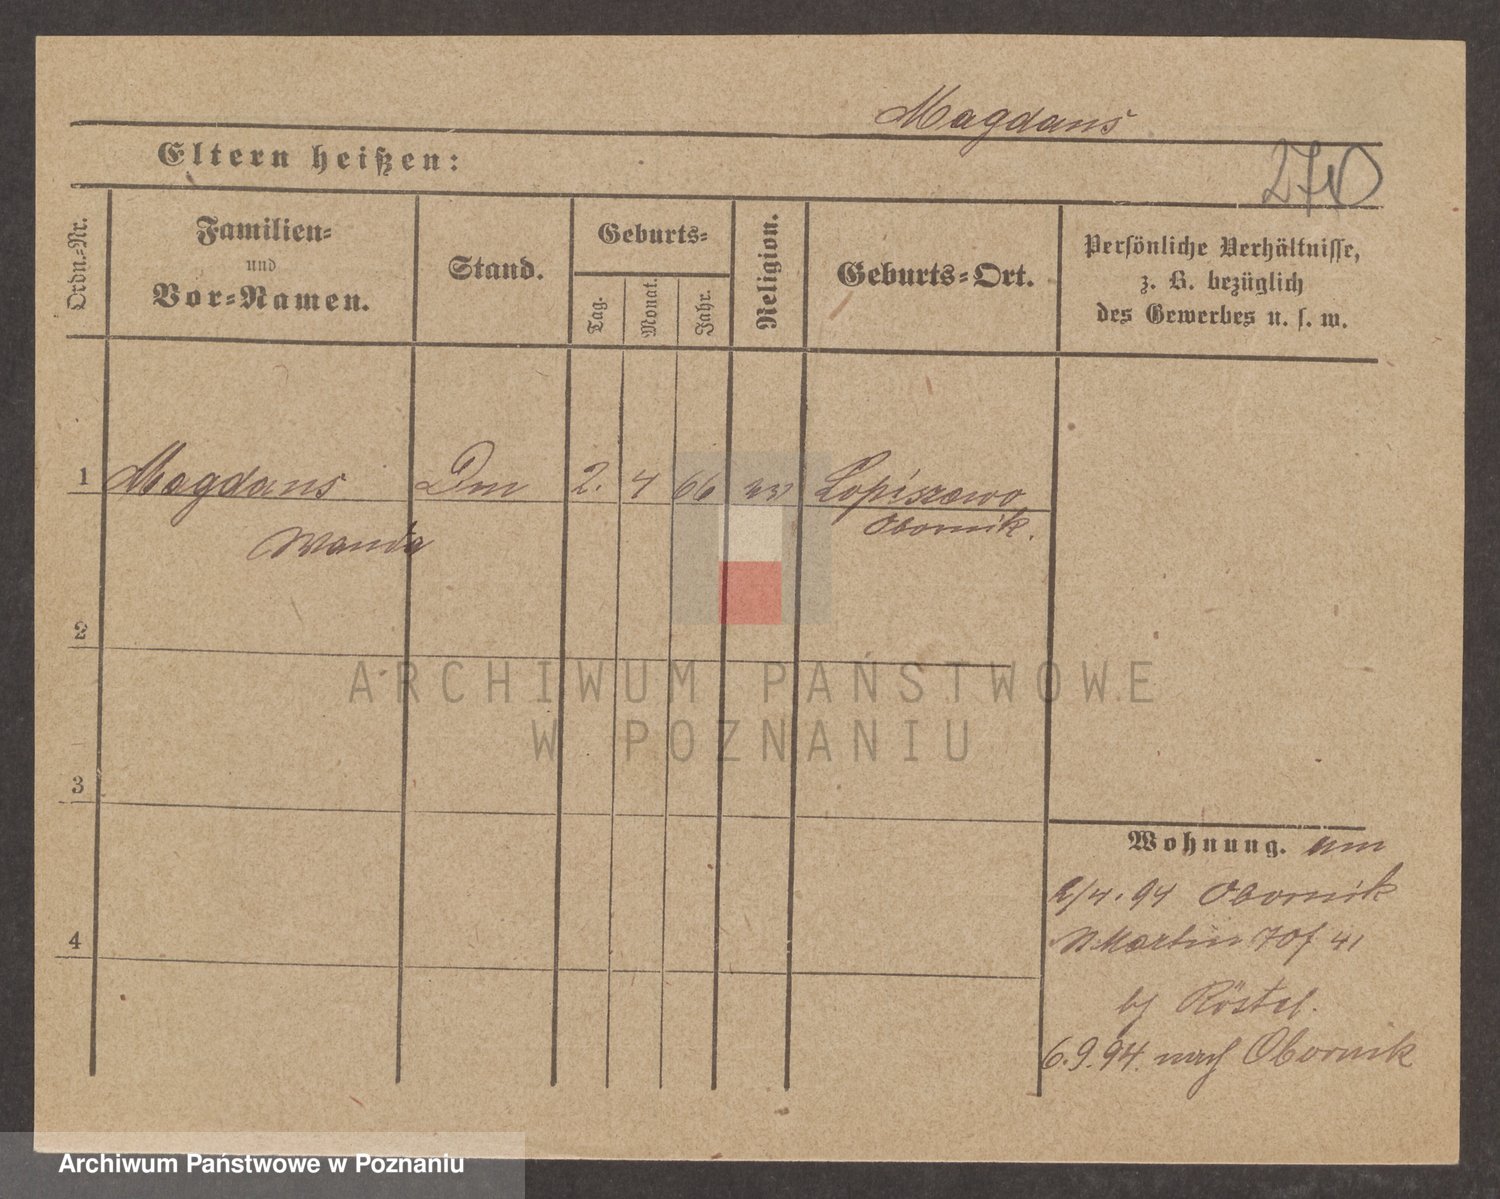 Magdans
Eltern heißen:
270
Ordn.-Nr.
Familien-
und
Vor-Namen.
Stand.
Geburts-
Tag.
Monat.
Jahr.
Religion.
Geburts-Ort.
Persönliche Verhältnisse,
z. B. bezüglich
des Gewerbes u. s. w.
1 Magdans 2. 4 66 Lopiszewo
Wanda Obornik.
2
3
4
Wohnung. am
2/4. 94 Obornik
Martin 41
bj Röstel.
6.9.94. nach Obornik
ARCHIWUM PAŃSTWOWE
W POZNANIU
Archiwum Państwowe w Poznaniu